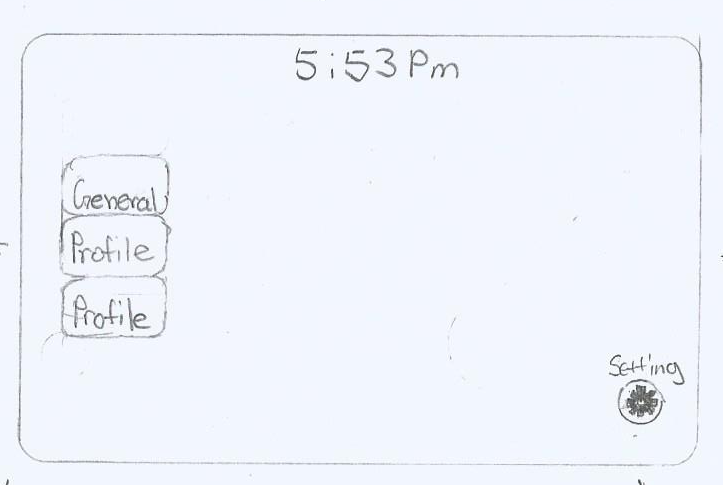 5:53 Pm
General
Profile
Profile
Setting